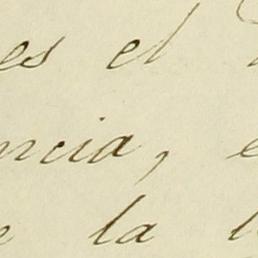 es el
ncia, e
e la l